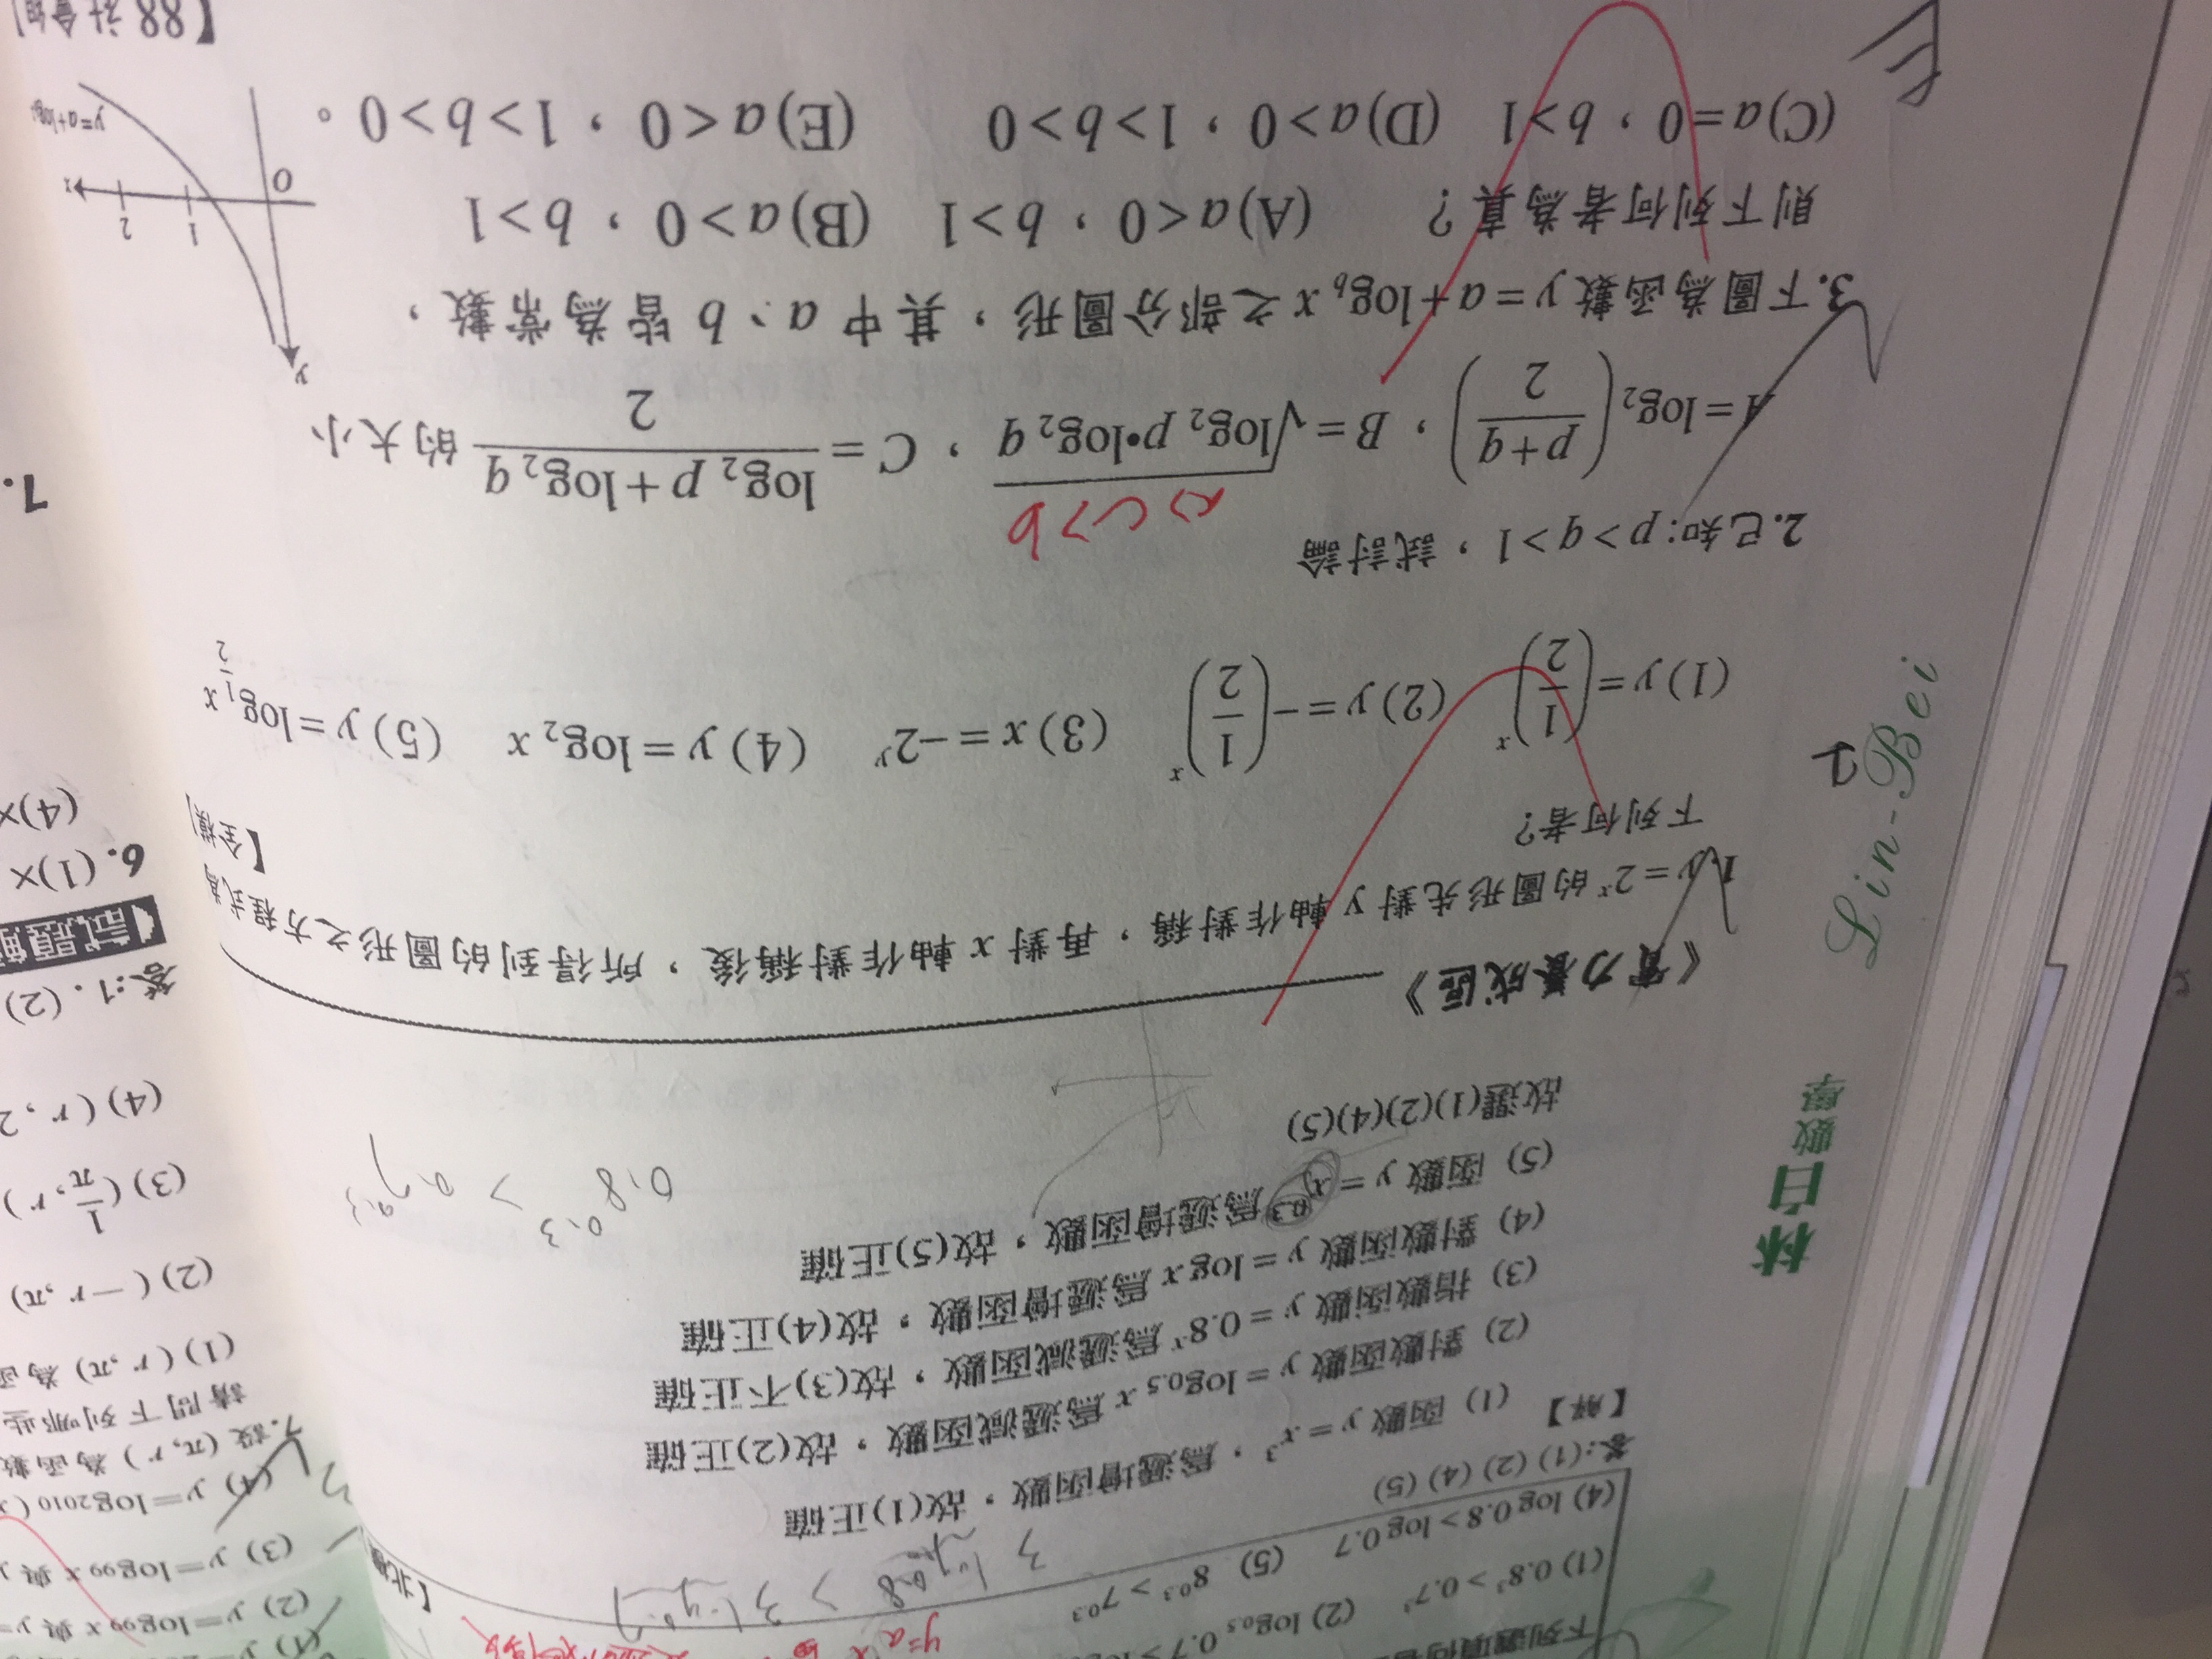 下列選項何者
(1) 0.8³ > 0.7³ (2) log₀.₅ 0.7 >
(4) log 0.8 > log 0.7 (5) 8⁰·³ > 7⁰·³
【北
答:(1) (2) (4) (5)
【解】 (1) 函數 y = x³,為遞增函數,故(1)正確
(2) 對數函數 y = log₀.₅ x 為遞減函數,故(2)正確
(3) 指數函數 y = 0.8ˣ 為遞減函數,故(3)不正確
(4) 對數函數 y = log x 為遞增函數,故(4)正確
(5) 函數 y = x⁰·³ 為遞增函數,故(5)正確
故選(1)(2)(4)(5)
0.8⁰·³ > 0.7⁰·³
林白
數學
Lin-Bei
《實力養成區》
1. y = 2ˣ 的圖形先對 y 軸作對稱,再對 x 軸作對稱後,所得到的圖形之方程式為
下列何者?
【全模】
2
(1) y = (1/2)ˣ (2) y = −(1/2)ˣ (3) x = −2ʸ (4) y = log₂ x (5) y = log_{1/2} x
2. 已知: p > q > 1,試討論
> c > b
A = log₂((p+q)/2),B = √(log₂ p•log₂ q),C = (log₂ p + log₂ q)/2 的大小
3. 下圖為函數 y = a + log_b x 之部分圖形,其中 a、b 皆為常數,
則下列何者為真? (A) a < 0,b > 1 (B) a > 0,b > 1
(C) a = 0,b > 1 (D) a > 0,1 > b > 0 (E) a < 0,1 > b > 0。
E
【88 社會組】
y
O
1
2
x
y=a+log
(2) y = log₉₉ x 與 y =
(3) y = log₉₉ x 與
(4) y = log₂₀₁₀ (
7. 設 (π, r) 為函數
請問下列哪些
(1) (r, π) 為
(2) (−r, π)
(3) (1/π, r)
(4) (r, 2
答:1. (2)
試題
6. (1)×
(4)×
7.